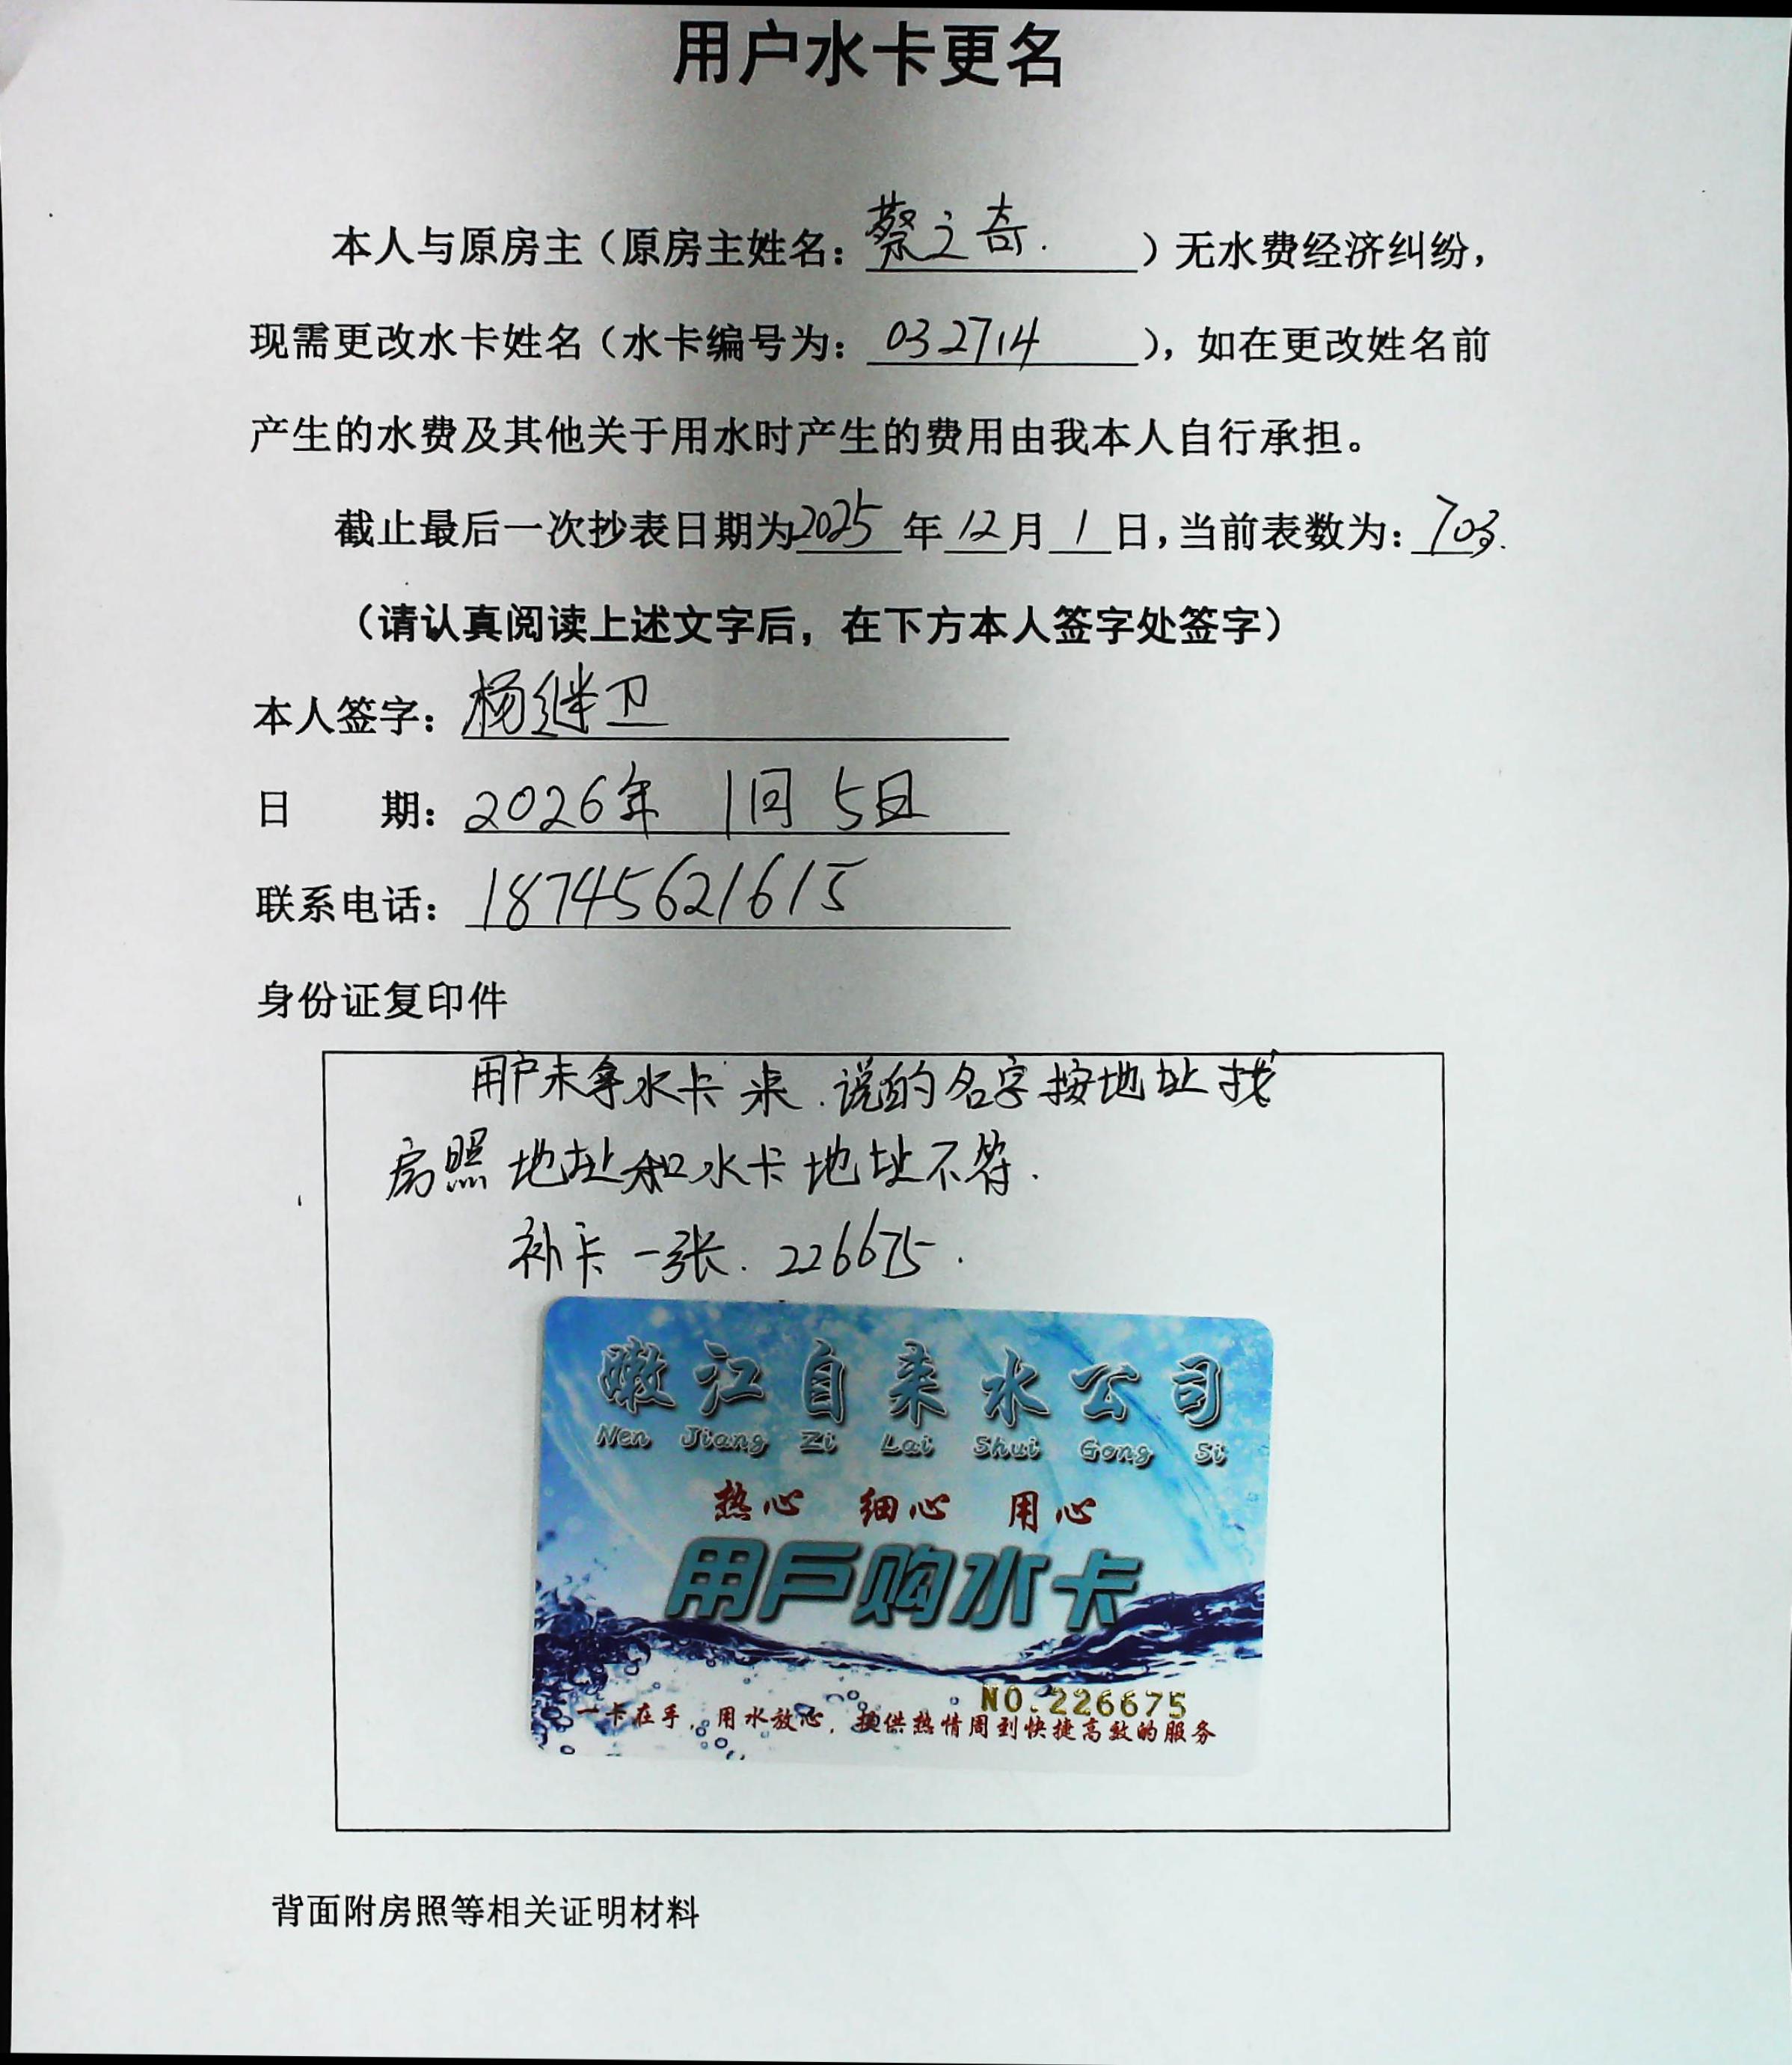 用户水卡更名
本人与原房主（原房主姓名：蔡之奇.）无水费经济纠纷，
现需更改水卡姓名（水卡编号为：032714），如在更改姓名前
产生的水费及其他关于用水时产生的费用由我本人自行承担。
截止最后一次抄表日期为2025年12月1日，当前表数为：703.
（请认真阅读上述文字后，在下方本人签字处签字）
本人签字：杨继卫
日 期：2026年 1月 5日
联系电话：18745621615
身份证复印件
用户未拿水卡来.说的名字按地址找
房照地址和水卡地址不符.
补卡一张.226675.
嫩江自来水公司
Nen Jiang Zi Lai Shui Gong Si
热心 细心 用心
用户购水卡
NO.226675
一卡在手，用水放心，提供热情周到快捷高效的服务
背面附房照等相关证明材料